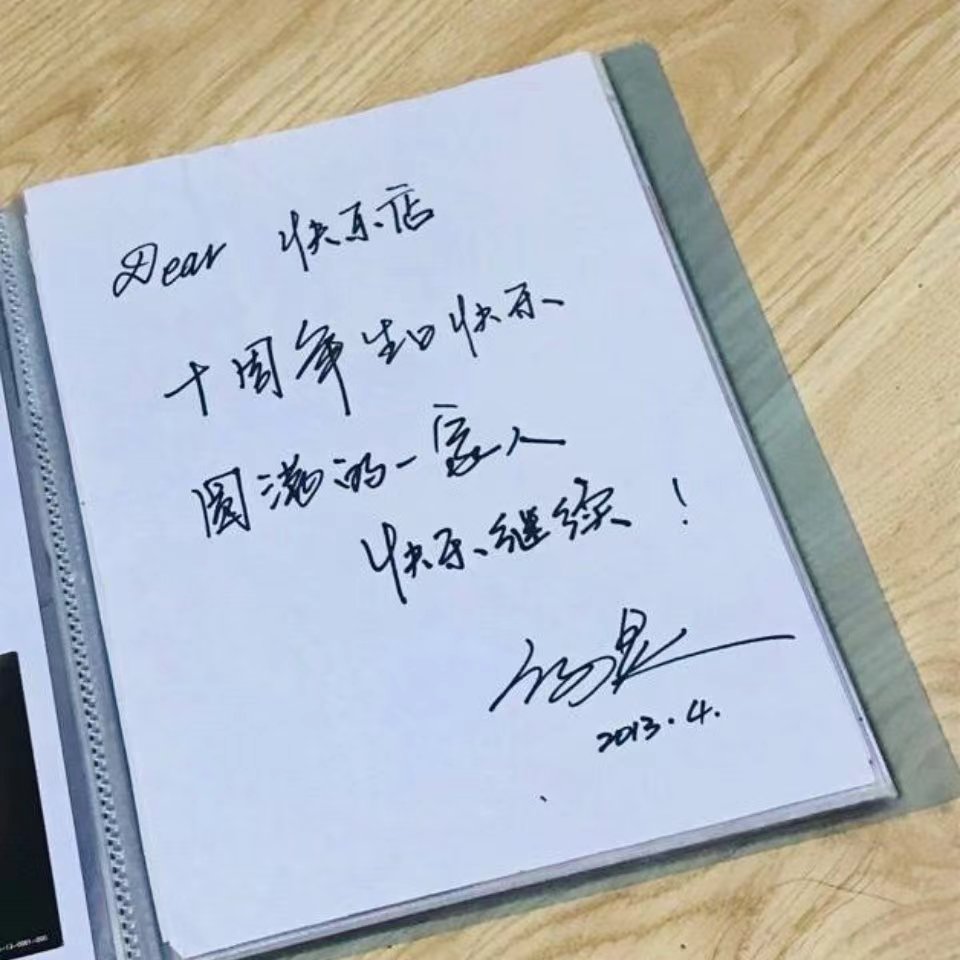 Dear 快乐店
十周年生日快乐
圆满的一家人
快乐继续！
2013.4.